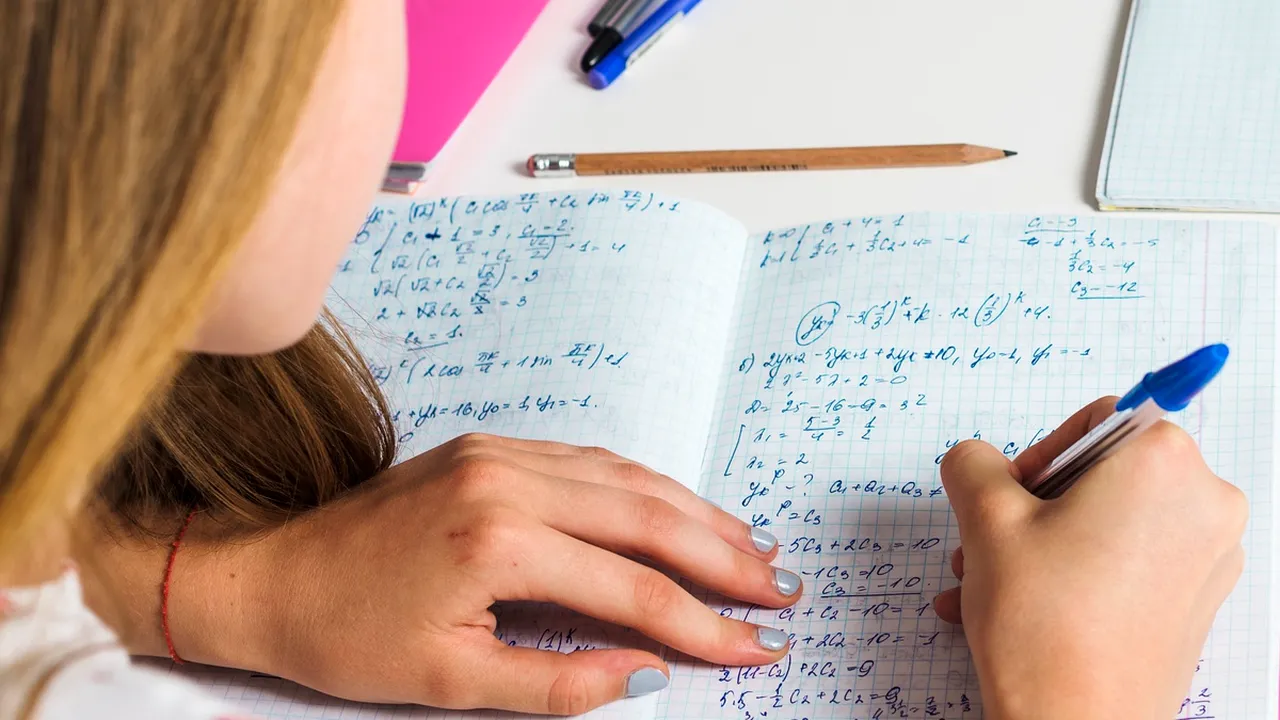 yₖ = (√2)ᵏ (c₁ cos πk/4 + c₂ sin πk/4) + 1
c₁ + 1 = 3, c₁ = 2.
√2 (c₁ √2/2 + c₂ √2/2) + 1 = 4
√2 (√2 + c₂ √2/2) = 3
2 + √2c₂ √2/2 = 3
c₂ = 1.
(2cos πk/4 + 1 sin πk/4) + 1.
1 + yₖ = 16, y₀ = 1, y₁ = -1.
k=0 { c₁ + 4 = 1
k=1 { 1/3 c₁ + 1/3 c₂ + 4 = -1
c₁ = -3
-1 + 1/3 c₂ = -5
1/3 c₂ = -4
c₂ = -12
yₖ = -3(1/3)ᵏ + k · 12 (1/3)ᵏ + 4.
б) 2yₖ₊₂ - 5yₖ₊₁ + 2yₖ = 10, y₀ = 1, y₁ = -1
2λ² - 5λ + 2 = 0
D = 25 - 16 = 9 = 3²
λ₁ = 5-3/4 = 1/2
λ₂ = 2
yₖᵖ - ? a₁ + a₂ + a₃ ≠
yₖᵖ = c₃
- 5c₃ + 2c₃ = 10
-1c₃ = 10
c₃ = -10
c₁ + c₂ - 10 = 1
+ 2c₂ - 10 = -1
1/2 (11 - c₂) + 2c₂ = 9
5,5 - 1/2 c₂ + 2c₂ = 9
(1)ᵏ